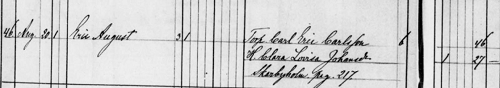 46 Aug. 20. 1 Eric August 2 1 Torp. Carl Eric Carlsson 6 46
H. Clara Lovisa Johansd. 1 27 —
Skarbyholm pag. 217.